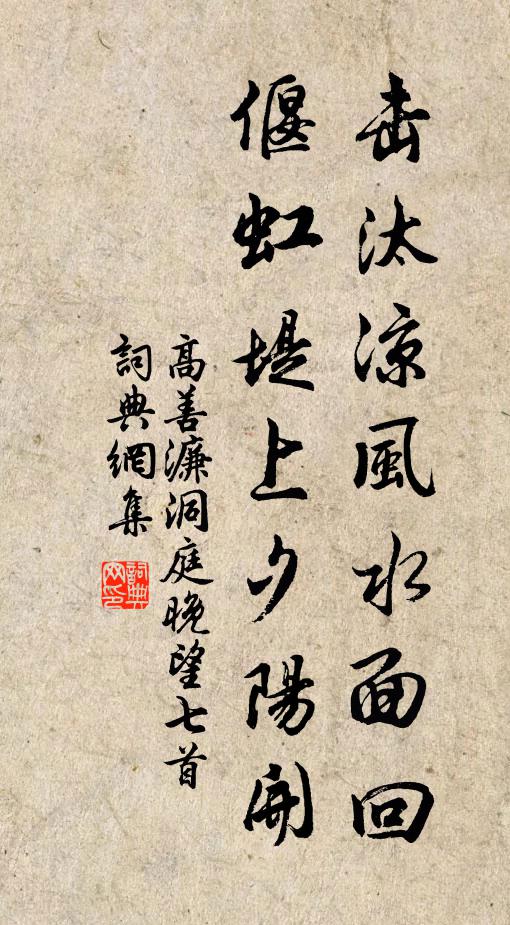 击汰凉風水面回
偃虹堤上夕陽開
高善濂洞庭晚望七首
詞典網集
詞典网印